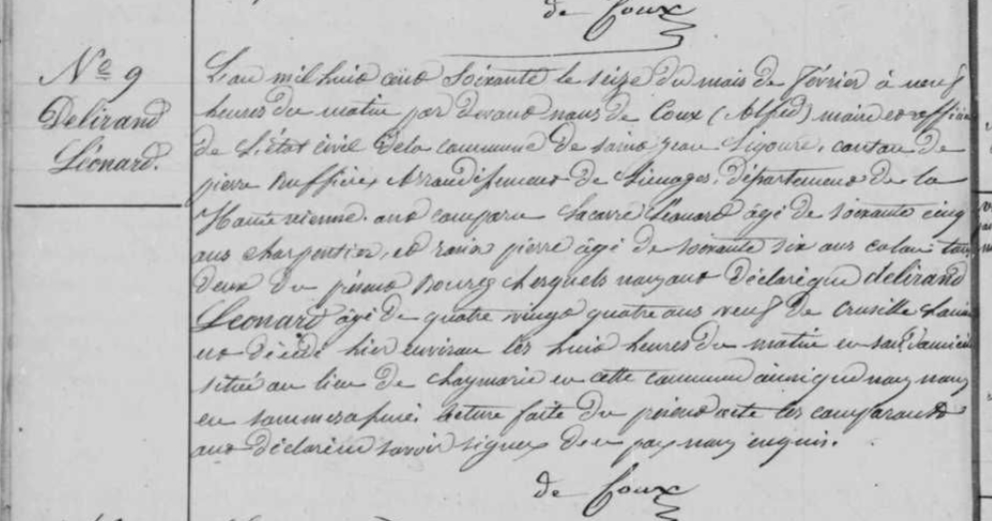 de Coux
No 9
Delirand
Léonard.
L'an mil huit cent soixante le seize du mois de février à neuf
heures du matin par devant nous de Coux (Alfred) maire et officier
de L'état civil de la commune de saint jean Ligoure, canton de
pierre Buffière, Arrondissement de Limoges, département de la
Haute vienne. ont comparu Lacorre Léonard âgé de soixante cinq
ans charpentier, et pierre âgé de soixante six ans colon tous
deux du présent Bourg Lesquels nous ont déclaré que delirand
Leonard âgé de quatre vingt quatre ans veuf de
est décédé hier environ les huit heures du matin en son domicile
située au lieu de Chaymarie en cette commune ainsi que nous nous
en sommes assuré. lecture faite du présent acte les comparants
ont déclaré savoir signer de ce par nous enquis.
de Coux